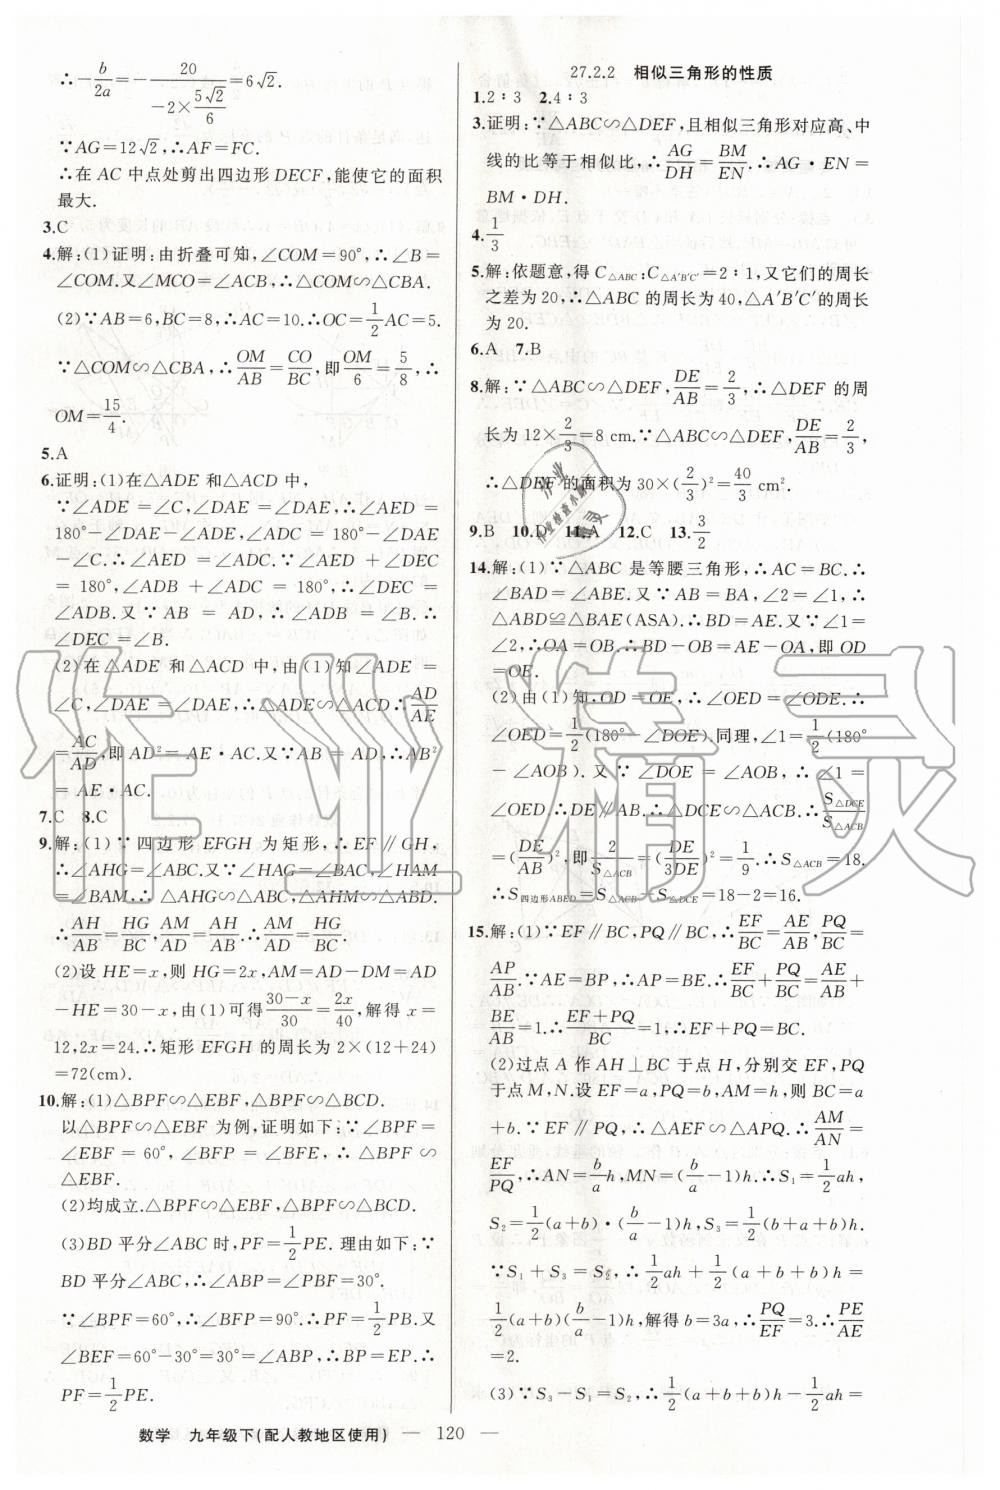 ∴-b/2a=-20/(-2×5√2/6)=6√2.
∵AG=12√2,∴AF=FC.
∴在 AC 中点处剪出四边形 DECF,能使它的面积
最大.
3.C
4.解:(1)证明:由折叠可知,∠COM=90°,∴∠B=
∠COM.又∠MCO=∠ACB,∴△COM∽△CBA.
(2)∵AB=6,BC=8,∴AC=10.∴OC=1/2AC=5.
∵△COM∽△CBA,∴OM/AB=CO/BC,即OM/6=5/8,∴
OM=15/4.
5.A
6.证明:(1)在△ADE 和△ACD 中,
∵∠ADE=∠C,∠DAE=∠DAE,∴∠AED=
180°-∠DAE-∠ADE,∠ADC=180°-∠DAE
-∠C.∴∠AED=∠ADC.∵∠AED+∠DEC
=180°,∠ADB+∠ADC=180°,∴∠DEC=
∠ADB.又∵AB=AD,∴∠ADB=∠B.∴
∠DEC=∠B.
(2)在△ADE 和△ACD 中,由(1)知∠ADE=
∠C,∠DAE=∠DAE,∴△ADE∽△ACD.∴AD/AE
=AC/AD,即AD²=AE·AC.又∵AB=AD,∴AB²
=AE·AC.
7.C 8.C
9.解:(1)∵四边形 EFGH 为矩形,∴EF∥GH,
∴∠AHG=∠ABC.又∵∠BAC=∠HAG,∠HAM
=∠BAM,∴△AHG∽△ABC,△AHM∽△ABD.
∴AH/AB=HG/BC,AM/AD=AH/AB.∴AM/AD=HG/BC.
(2)设 HE=x,则 HG=2x,AM=AD-DM=AD
-HE=30-x,由(1)可得(30-x)/30=2x/40,解得 x=
12,2x=24.∴矩形 EFGH 的周长为 2×(12+24)
=72(cm).
10.解:(1)△BPF∽△EBF,△BPF∽△BCD.
以△BPF∽△EBF 为例,证明如下:∵∠BPF=
∠EBF=60°,∠BFP=∠BFE,∴△BPF∽
△EBF.
(2)均成立.△BPF∽△EBF,△BPF∽△BCD.
(3)BD 平分∠ABC 时,PF=1/2PE. 理由如下:∵
BD 平分∠ABC,∴∠ABP=∠PBF=30°.
∵∠BPF=60°,∴∠BFP=90°.∴PF=1/2PB.又
∠BEF=60°-30°=30°=∠ABP,∴BP=EP.∴
PF=1/2PE.
27.2.2 相似三角形的性质
1.2∶3 2.4∶3
3.证明:∵△ABC∽△DEF,且相似三角形对应高、中
线的比等于相似比,∴AG/DH=BM/EN.∴AG·EN=
BM·DH.
4.1/3
5.解:依题意,得 C△ABC∶C△A'B'C'=2∶1,又它们的周长
之差为 20,∴△ABC 的周长为 40,△A'B'C'的周长
为 20.
6.A 7.B
8.解:∵△ABC∽△DEF,DE/AB=2/3,∴△DEF 的周
长为 12×2/3=8 cm.∵△ABC∽△DEF,DE/AB=2/3,
∴△DEF 的面积为 30×(2/3)²=40/3 cm².
9.B 10.D 11.A 12.C 13.3/2
14.解:(1)∵△ABC 是等腰三角形,∴AC=BC.∴
∠BAD=∠ABE.又∵AB=BA,∠2=∠1,∴
△ABD≌△BAE(ASA).∴BD=AE.又∵∠1=
∠2,∴OA=OB.∴BD-OB=AE-OA,即 OD
=OE.
(2)由(1)知,OD=OE,∴∠OED=∠ODE.∴
∠OED=1/2(180°-∠DOE).同理,∠1=1/2(180°
-∠AOB).又∵∠DOE=∠AOB,∴∠1=
∠OED.∴DE∥AB.∴△DCE∽△ACB.∴S△DCE/S△ACB
=(DE/AB)²,即2/S△ACB=(DE/3DE)²=1/9.∴S△ACB=18,
∴S四边形ABED=S△ACB-S△DCE=18-2=16.
15.解:(1)∵EF∥BC,PQ∥BC,∴EF/BC=AE/AB,PQ/BC=
AP/AB.∵AE=BP,∴AP=BE.∴EF/BC+PQ/BC=AE/AB+
BE/AB=1.∴(EF+PQ)/BC=1,∴EF+PQ=BC.
(2)过点 A 作 AH⊥BC 于点 H,分别交 EF,PQ
于点 M,N.设 EF=a,PQ=b,AM=h,则 BC=a
+b.∵EF∥PQ,∴△AEF∽△APQ.∴AM/AN=
EF/PQ,∴AN=b/a h,MN=(b/a-1)h.∴S₁=1/2ah,
S₂=1/2(a+b)·(b/a-1)h,S₃=1/2(b+a+b)h.
∵S₁+S₃=S₂,∴1/2ah+1/2(a+b+b)h=
1/2(a+b)(b/a-1)h,解得 b=3a,∴PQ/EF=3.∴PE/AE
=2.
(3)∵S₃-S₁=S₂,∴1/2(a+b+b)h-1/2ah=
数学 九年级下(配人教地区使用) — 120 —
作业精灵
作业
作业检查小助手
精灵